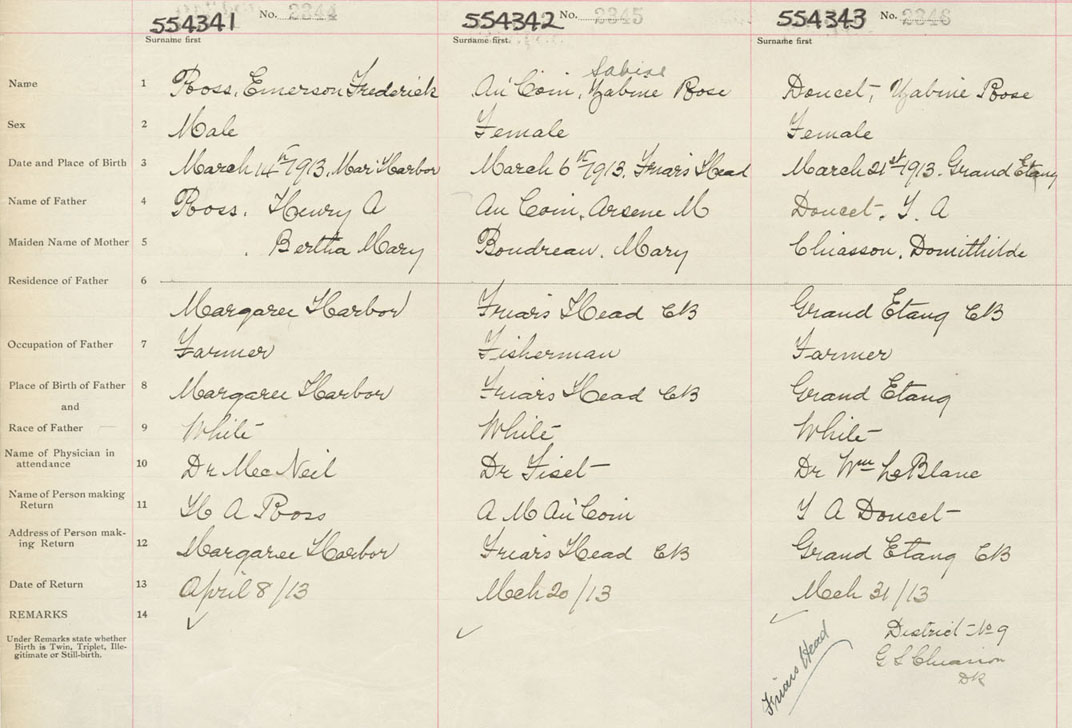 554341 No. 2344 554342 No. 2345 554343 No. 2346
Surname first Surname first. Surname first
Sabine
Name 1 Ross, Emerson Frederick Au Coin, Zabine Rose Doucet, Zabine Rose
Sex 2 Male Female Female
Date and Place of Birth 3 March 14th 1913. Mar Harbor March 6th 1913. Friars Head March 21st 1913. Grand Etang
Name of Father 4 Ross. Henry A Au Coin, Arsene M Doucet, A
Maiden Name of Mother 5 Bertha Mary Boudreau, Mary Chiasson, Domithilde
Residence of Father 6
Margaree Harbor Friars Head CB Grand Etang CB
Occupation of Father 7 Farmer Fisherman Farmer
Place of Birth of Father 8 Margaree Harbor Friars Head CB Grand Etang
and
Race of Father 9 White White White
Name of Physician in
attendance 10 Dr MacNeil Dr Fiset Dr Wm LeBlanc
Name of Person making
Return 11 H A Ross A M Au Coin A Doucet
Address of Person mak-
ing Return 12 Margaree Harbor Friars Head CB Grand Etang CB
Date of Return 13 April 8/13 Mch 20/13 Mch 31/13
REMARKS 14
Under Remarks state whether
Birth is Twin, Triplet, Ille-
gitimate or Still-birth.
Friars Head
District No 9
G L Chiasson